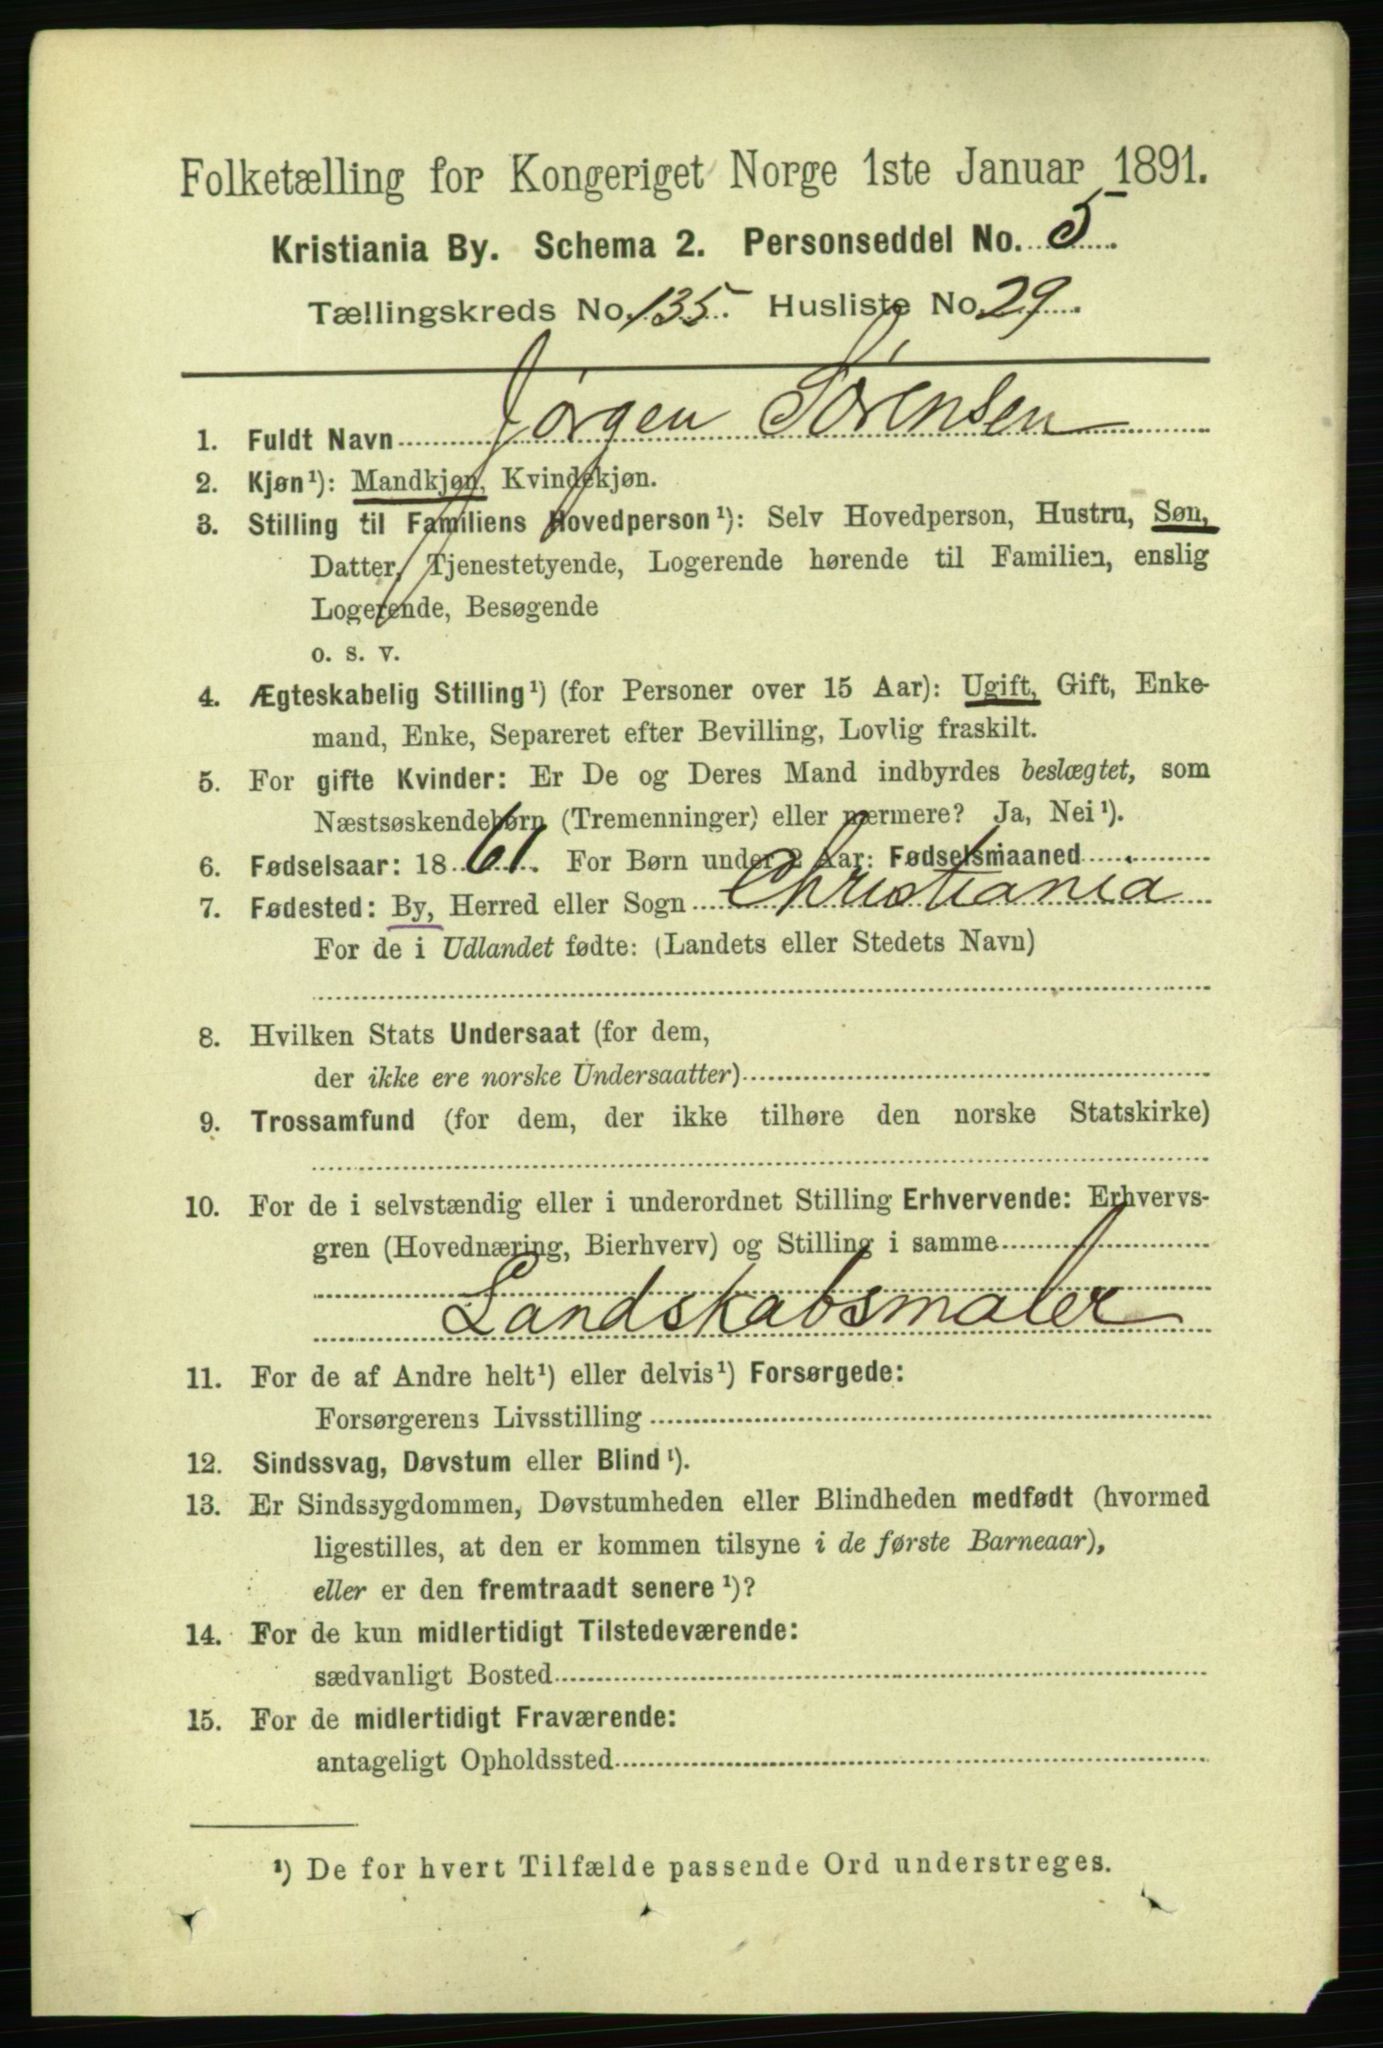 Folketælling for Kongeriget Norge 1ste Januar 1891.
Kristiania By. Schema 2. Personseddel No. 5
Tællingskreds No. 135 Husliste No. 29
1. Fuldt Navn Jørgen Sørensen
2. Kjøn¹): Mandkjøn, Kvindekjøn.
3. Stilling til Familiens Hovedperson¹): Selv Hovedperson, Hustru, Søn,
Datter, Tjenestetyende, Logerende hørende til Familien, enslig
Logerende, Besøgende
o. s. v.
4. Ægteskabelig Stilling¹) (for Personer over 15 Aar): Ugift, Gift, Enke-
mand, Enke, Separeret efter Bevilling, Lovlig fraskilt.
5. For gifte Kvinder: Er De og Deres Mand indbyrdes beslægtet, som
Næstsøskendebørn (Tremenninger) eller nærmere? Ja, Nei¹).
6. Fødselsaar: 1861. For Børn under 2 Aar: Fødselsmaaned
7. Fødested: By, Herred eller Sogn Christiania
For de i Udlandet fødte: (Landets eller Stedets Navn)
8. Hvilken Stats Undersaat (for dem,
der ikke ere norske Undersaatter)
9. Trossamfund (for dem, der ikke tilhøre den norske Statskirke)
10. For de i selvstændig eller i underordnet Stilling Erhvervende: Erhvervs-
gren (Hovednæring, Bierhverv) og Stilling i samme
Landskabsmaler
11. For de af Andre helt¹) eller delvis¹) Forsørgede:
Forsørgerens Livsstilling
12. Sindssvag, Døvstum eller Blind¹).
13. Er Sindssygdommen, Døvstumheden eller Blindheden medfødt (hvormed
ligestilles, at den er kommen tilsyne i de første Barneaar),
eller er den fremtraadt senere¹)?
14. For de kun midlertidigt Tilstedeværende:
sædvanligt Bosted
15. For de midlertidigt Fraværende:
antageligt Opholdssted
¹) De for hvert Tilfælde passende Ord understreges.